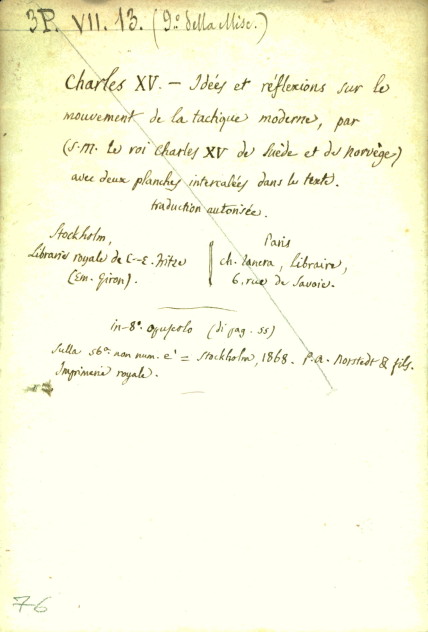 3P. VII. 13. (9º della Misc.)
Charles XV. — Idées et réflexions sur le
mouvement de la tactique moderne, par
(S. M. le roi Charles XV de Suède et de Norvège)
avec deux planches intercalées dans le texte.
traduction autorisée.
Stockholm,
Librairie royale de C-E. Fritze
(Em. Giron).
Paris
Ch. Tanera, Libraire,
6, rue de Savoie.
in-8º. opuscolo (di pag. 55)
Sulla 56ª. non num. e' = Stockholm, 1868. P. A. Norstedt & fils.
Imprimerie royale.
76